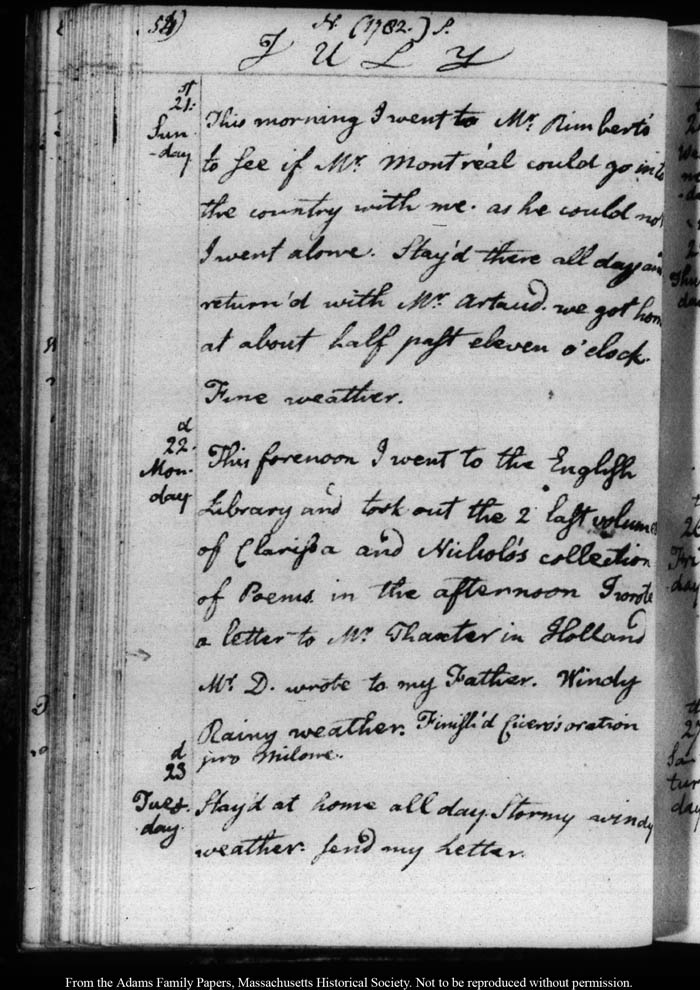 54)
N. (1782.) S.
JULY
21st
Sun-
-day
This morning I went to Mr. Rimbert's
to see if Mr. Montréal could go into
the country with me. as he could not
I went alone. Stay'd there all day and
return'd with Mr. Artaud. we got home
at about half past eleven o'clock.
Fine weather.
22d.
Mon-
day
This forenoon I went to the English
Library and took out the 2 last volumes
of Clarissa and Nichols's collection
of Poems. in the afternoon I wrote
a letter to Mr. Thaxter in Holland
Mr. D. wrote to my Father. Windy
Rainy weather. Finish'd Cicero's oration
pro Milone.
23d
Tues-
day.
Stay'd at home all day. Stormy windy
weather. send my Letter.
From the Adams Family Papers, Massachusetts Historical Society. Not to be reproduced without permission.